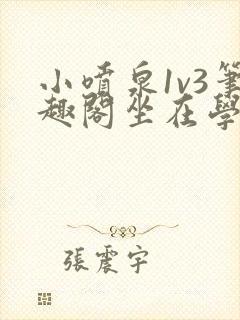 小噴泉1v3筆
趣閣坐在學
張震宇